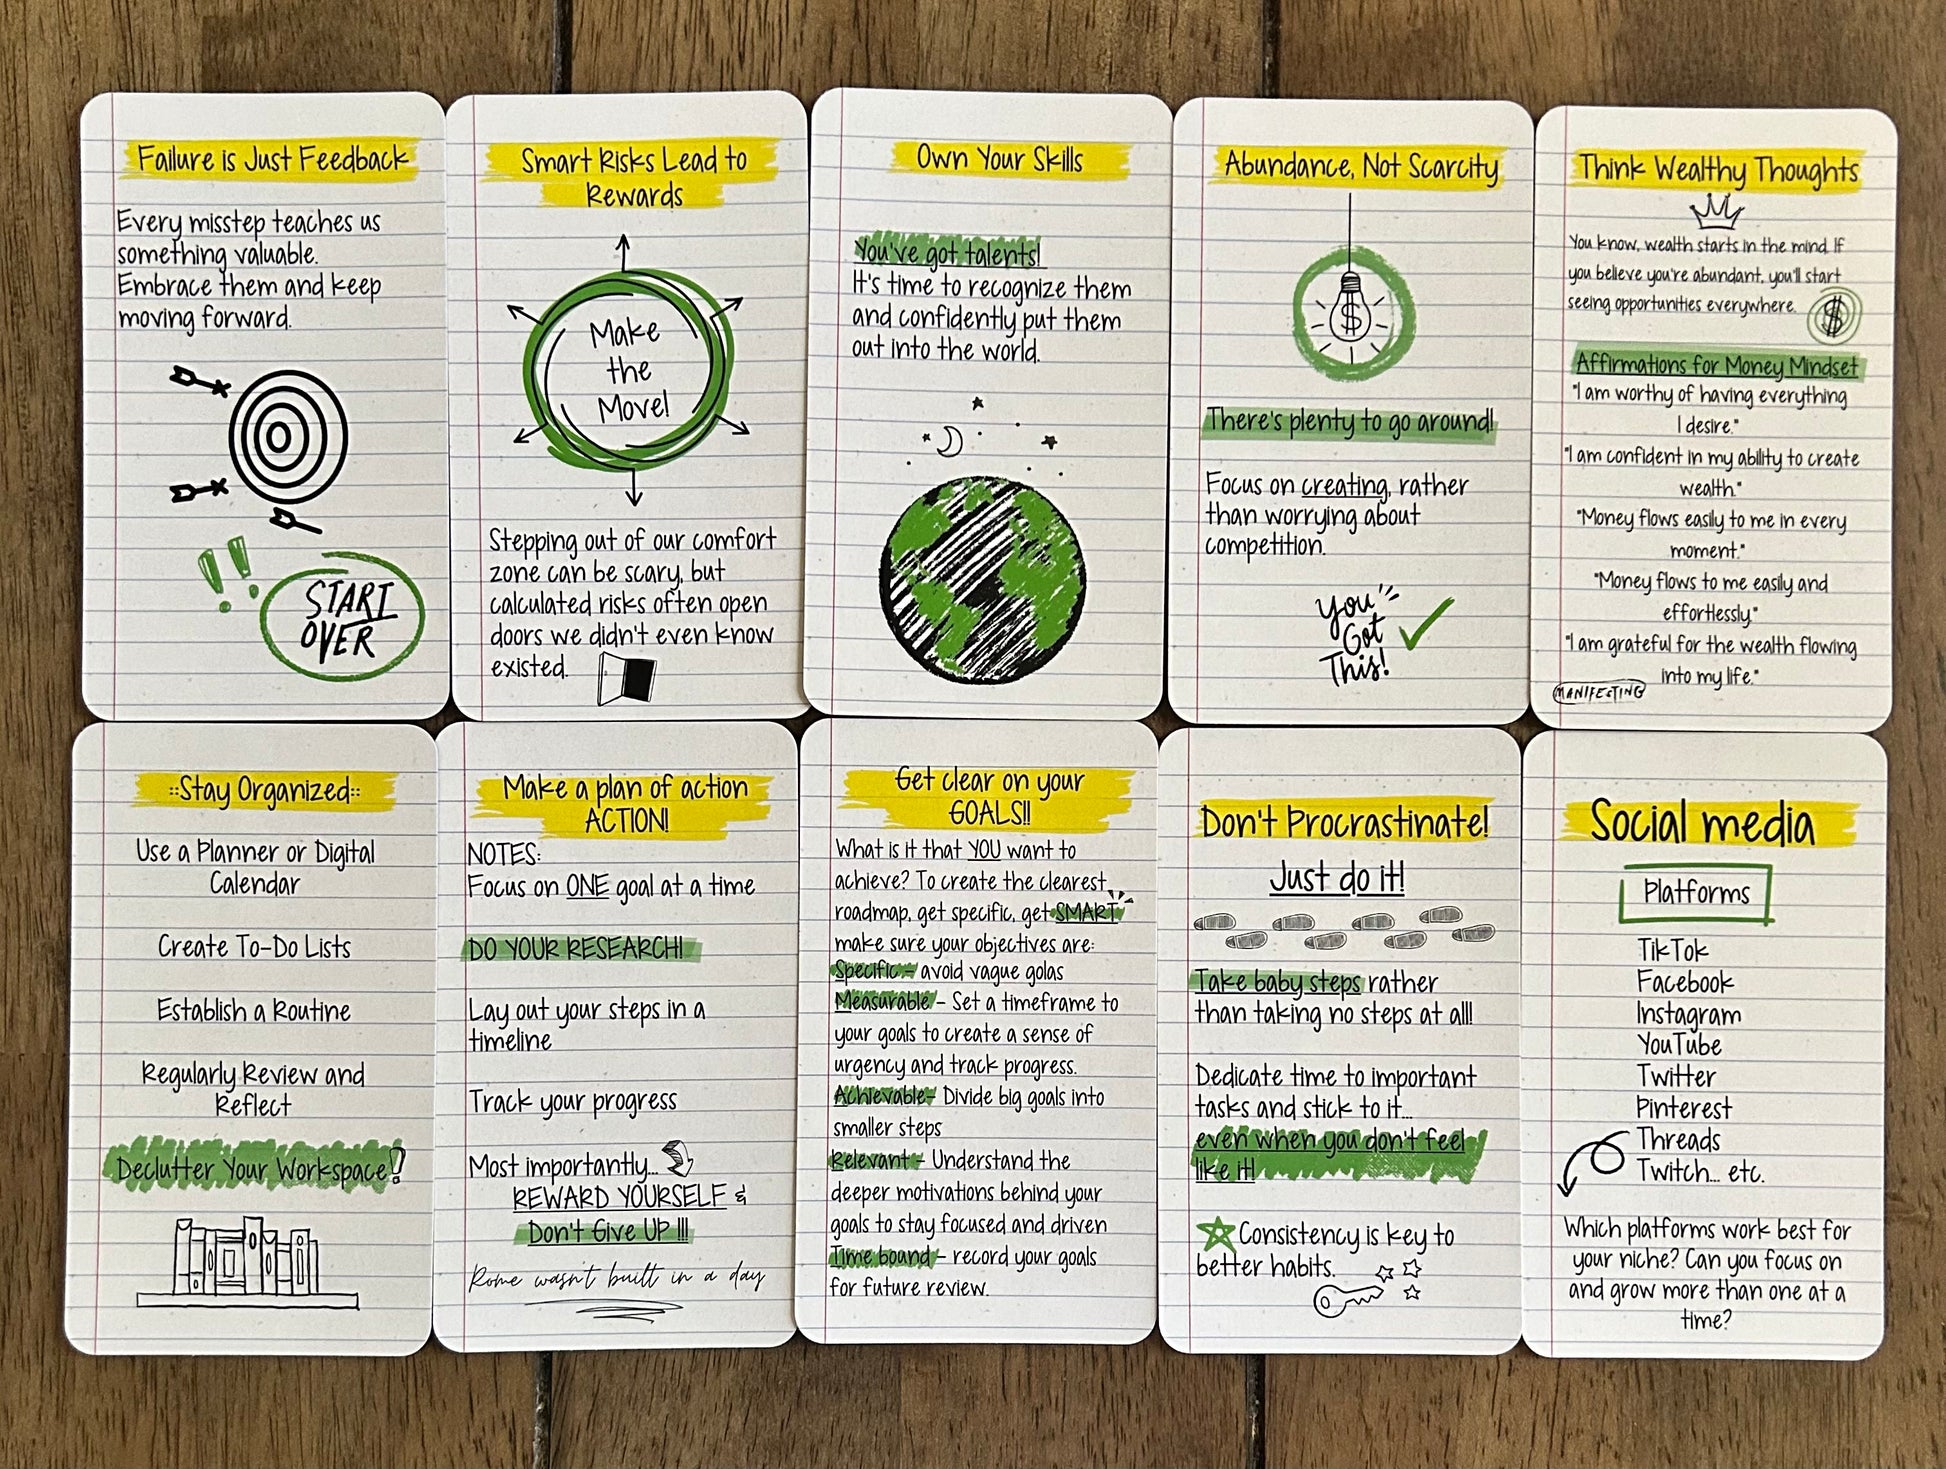 Failure is Just Feedback
Every misstep teaches us
something valuable.
Embrace them and keep
moving forward.
START
OVER
Smart Risks Lead to
Rewards
Make
the
Move!
Stepping out of our comfort
zone can be scary, but
calculated risks often open
doors we didn't even know
existed.
Own Your Skills
You've got talents!
It's time to recognize them
and confidently put them
out into the world.
Abundance, Not Scarcity
$
There's plenty to go around!
Focus on creating, rather
than worrying about
competition.
You
Got
This!
Think Wealthy Thoughts
You know, wealth starts in the mind. If
you believe you're abundant, you'll start
seeing opportunities everywhere.
$
Affirmations for Money Mindset
"I am worthy of having everything
I desire."
"I am confident in my ability to create
wealth."
"Money flows easily to me in every
moment."
"Money flows to me easily and
effortlessly."
"I am grateful for the wealth flowing
into my life."
MANIFESTING
::Stay Organized::
Use a Planner or Digital
Calendar
Create To-Do Lists
Establish a Routine
Regularly Review and
Reflect
Declutter Your Workspace!
Make a plan of action
ACTION!
NOTES:
Focus on ONE goal at a time
DO YOUR RESEARCH!
Lay out your steps in a
timeline
Track your progress
Most importantly...
REWARD YOURSELF &
Don't Give UP !!!
Rome wasn't built in a day
Get clear on your
GOALS!!
What is it that YOU want to
achieve? To create the clearest
roadmap, get specific, get SMART
make sure your objectives are:
Specific - avoid vague golas
Measurable - Set a timeframe to
your goals to create a sense of
urgency and track progress.
Achievable- Divide big goals into
smaller steps
Relevant - Understand the
deeper motivations behind your
goals to stay focused and driven
Time bound - record your goals
for future review.
Don't Procrastinate!
Just do it!
Take baby steps rather
than taking no steps at all!
Dedicate time to important
tasks and stick to it...
even when you don't feel
like it!
Consistency is key to
better habits.
Social media
Platforms
TikTok
Facebook
Instagram
YouTube
Twitter
Pinterest
Threads
Twitch... etc.
Which platforms work best for
your niche? Can you focus on
and grow more than one at a
time?